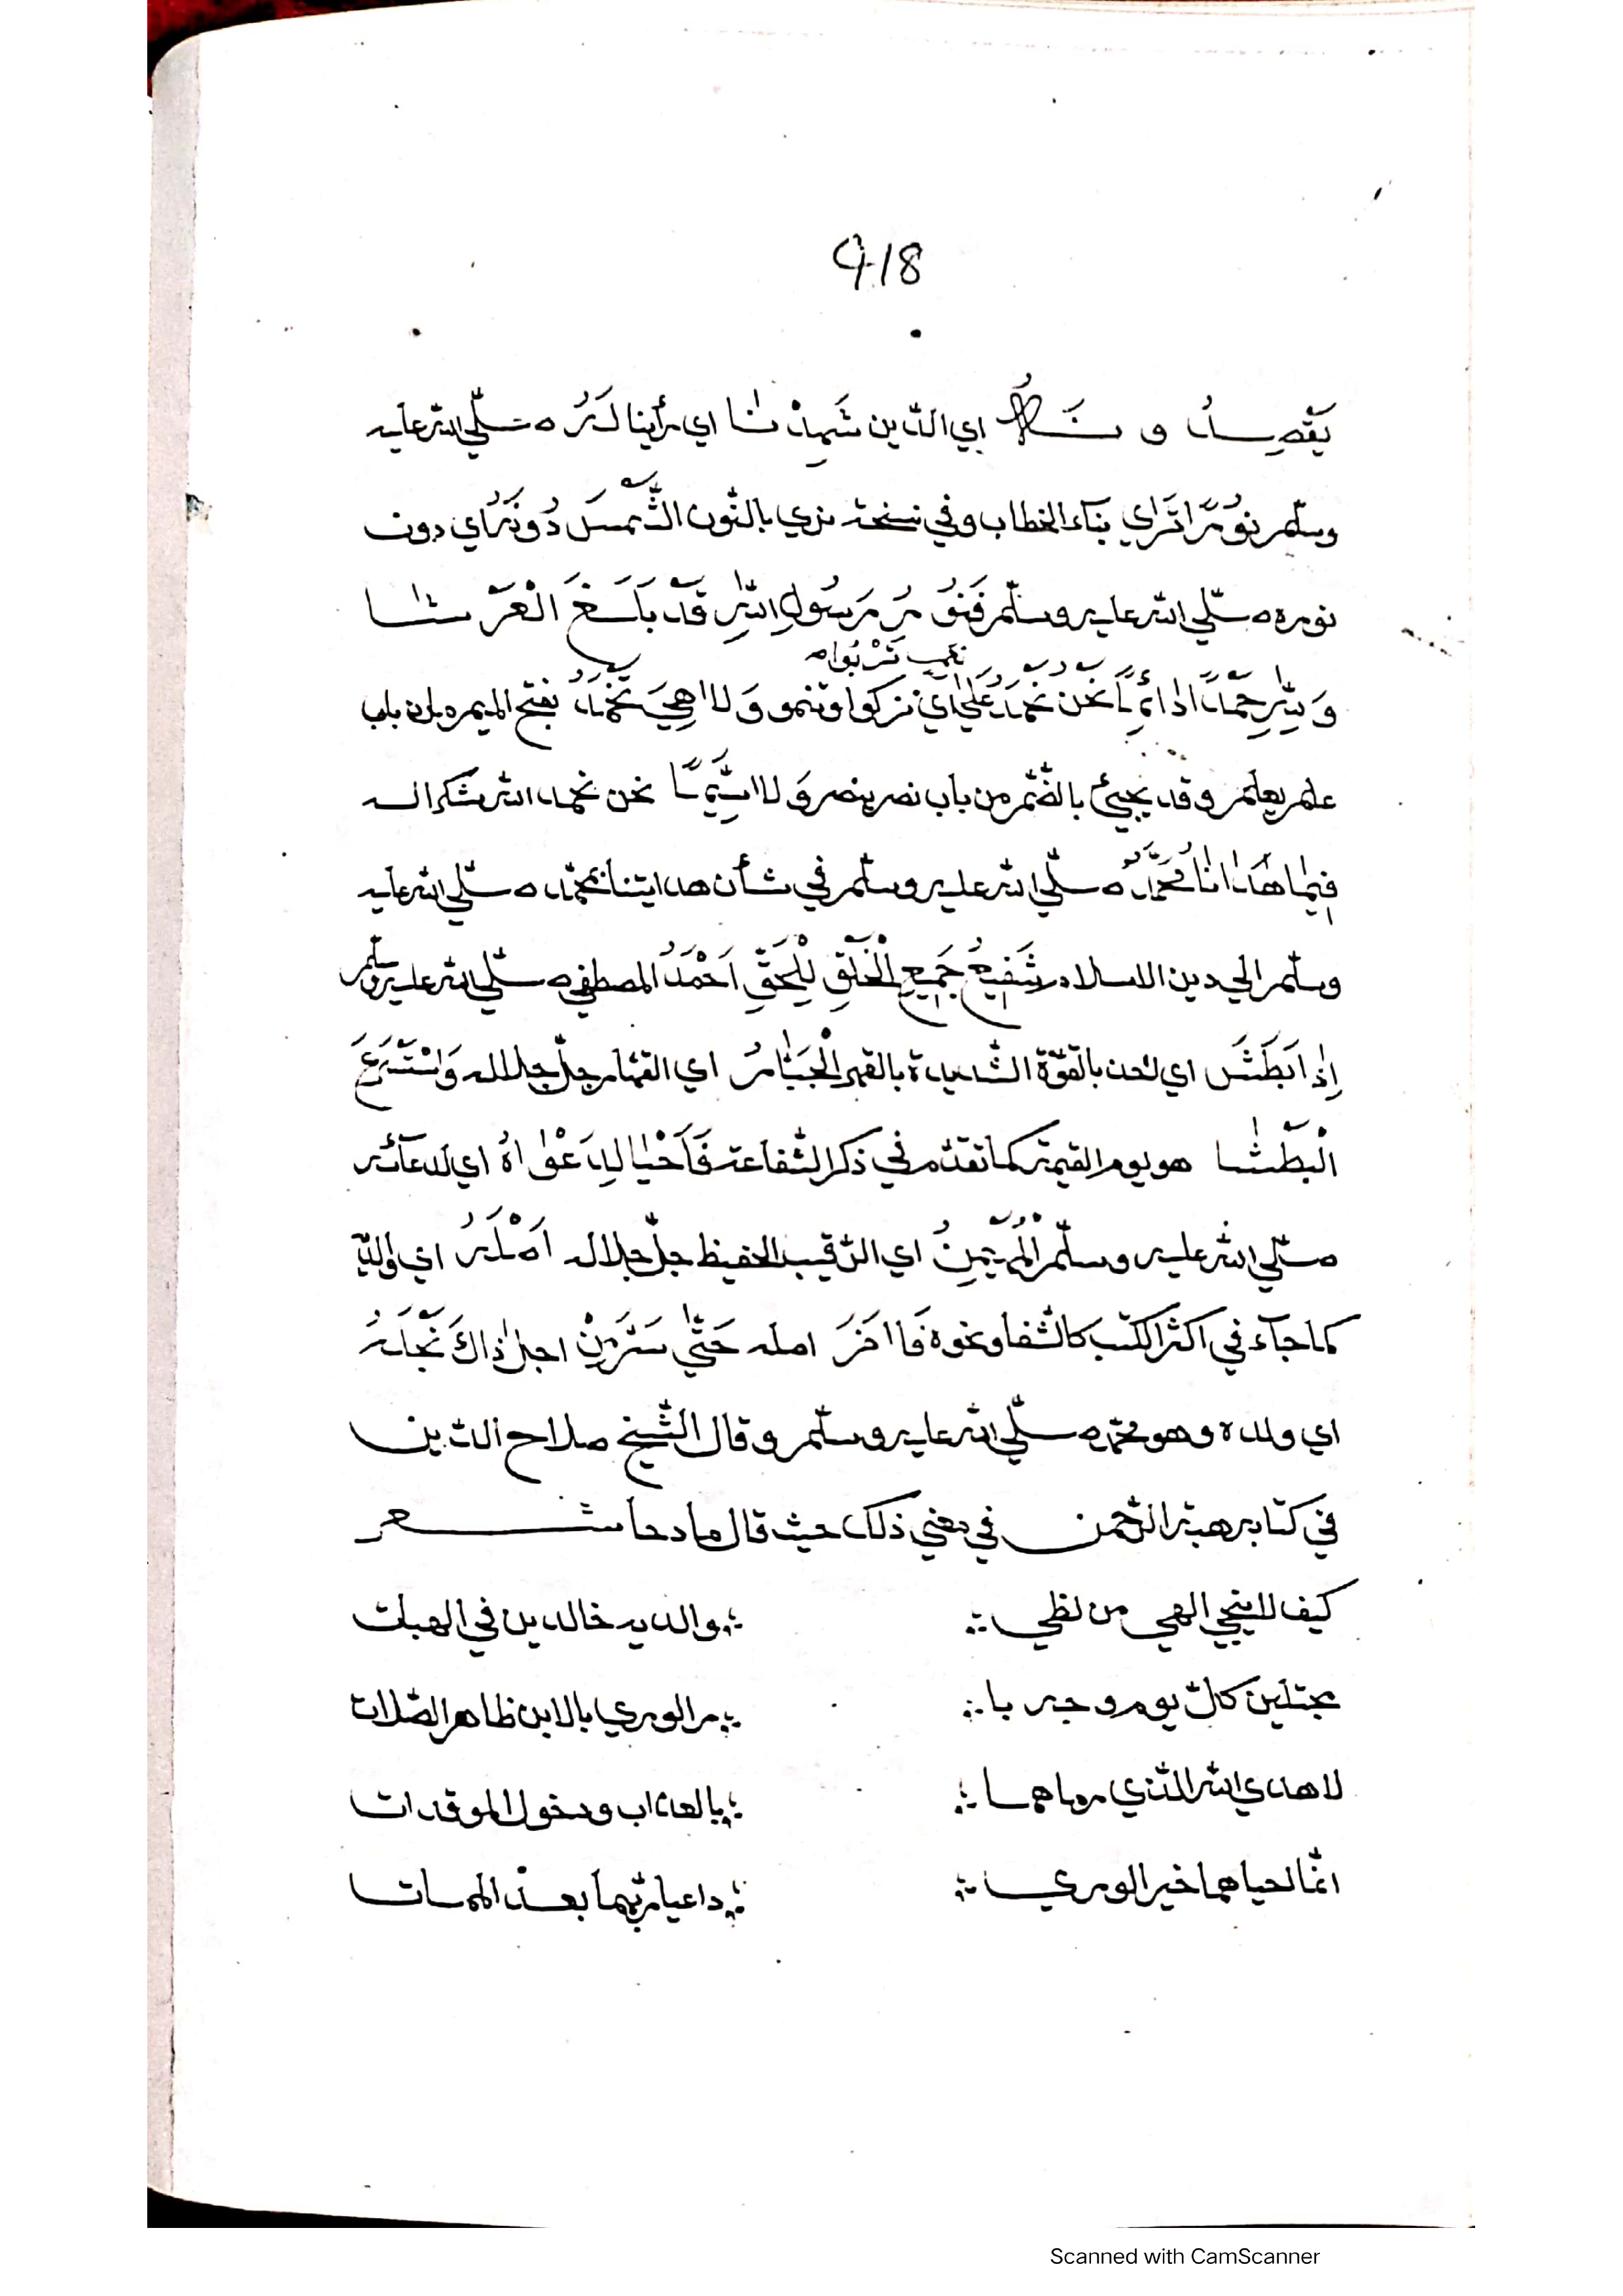 418
يَقْصِدُ و اي الذين شَهِدْنَا اي رأينا لَهُ صلّي الله عليه
وسلّم نُوْرًا تَرَاي بتاء الخطاب وفي نسخة نري بالنّون الشَّمْسَ دُوْنَهُ اي دون
نوره صلّي الله عليه وسلّم فَنُوْرُ رَسُوْلِ اللهِ قَدْ بَلَغَ الْعَرْشَا
نعمه تَرْبُوا
وَلِلّٰهِ حَمْدًا دَائِمًا نَحْنُ نَحْمَدُ عَلٰي اي تزكوا وتنمو وَلَا هِيَ تَخْمَدُ بفتح الميم من باب
علم يعلم وقد يجيئ بالضّم من باب نصر ينصر وَلَا سِيَّمَا نحن نحمد الله شكرا له
فِيْمَا هَدَانَا مُحَمَّدٌ صلّي الله عليه وسلّم في شأن هدايتنا بمحمّد صلّي الله عليه
وسلّم الي دين الاسلام شَفِيْعُ جَمِيْعِ الْخَلْقِ لِلْحَقِّ اَحْمَدُ المصطفي صلّي الله عليه وسلّم
اِذَا بَطَشَ اي اخذ بالقوّة الشّديدة بالقهر الْجَبَّارُ اي القهّار جلّ جلاله وَاسْتَسْرَعَ
الْبَطْشَا هو يوم القيمة كما تقدّم في ذكر الشّفاعة فَاَحْيَا لِدَعْوَاهُ اي لدعائه
صلّي الله عليه وسلّم الْمُهَيْمِنُ اي الرّقيب الحفيظ جلّ جلاله اَصْلَهُ اي والديه
كما جاء في اكثر الكتب كالشّفا ونحوه اصله حَتّٰي سَرَّ مِنْ اجل ذَاكَ نَجْلَهُ
اي ولده وهو محمّد صلّي الله عليه وسلّم وقال الشّيخ صلاح الدّين
في كتابه هبة الرّحمن في معني ذلك حيث قال مادحا شعر
كيف لا ينجي الهي من لظي ؞ ؞ والديه خالدين في الهبات
مجتلين كلّ يوم وجه با ؞ ؞ هر الوري بالابن ظاهر الصّلات
لا هدي الله الذي رماهما ؞ ؞ بالعذاب ودخول الموقدات
انّما احياهما خير الوري ؞ ؞ داعيا ربّهما بعد الممات
Scanned with CamScanner